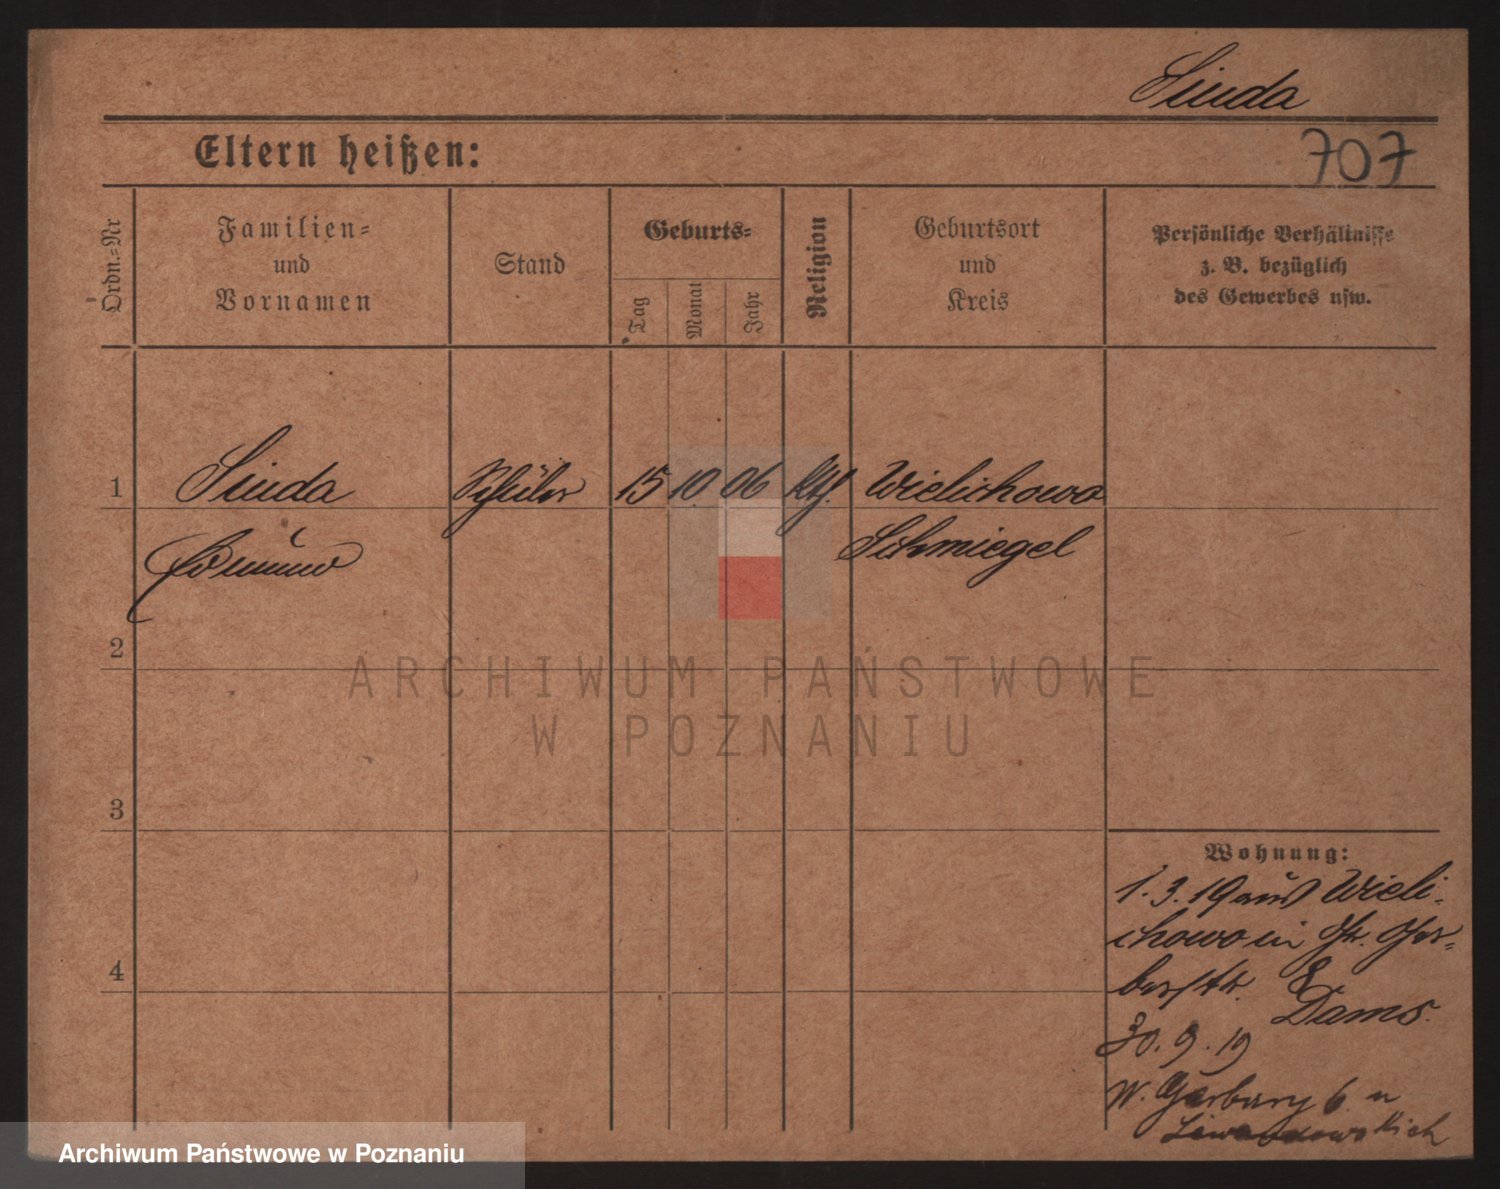 Sinda
Eltern heißen:
707
Ordn.=Nr
Familien=
und
Vornamen
Stand
Geburts=
Tag
Monat
Jahr
Religion
Geburtsort
und
Kreis
Persönliche Verhältnisse
z. B. bezüglich
des Gewerbes usw.
1
Sinda
Schüler
15
10
06
kth.
Wielichowo
Edmund
Schmiegel
2
ARCHIWUM PAŃSTWOWE
W POZNANIU
3
Wohnung:
1.3.19 aus Wieli-
chowo in Gr. Ger-
berstr. 8
4
Dams.
30.9.19
W. Garbary 6 u
Lewandowskich
Archiwum Państwowe w Poznaniu